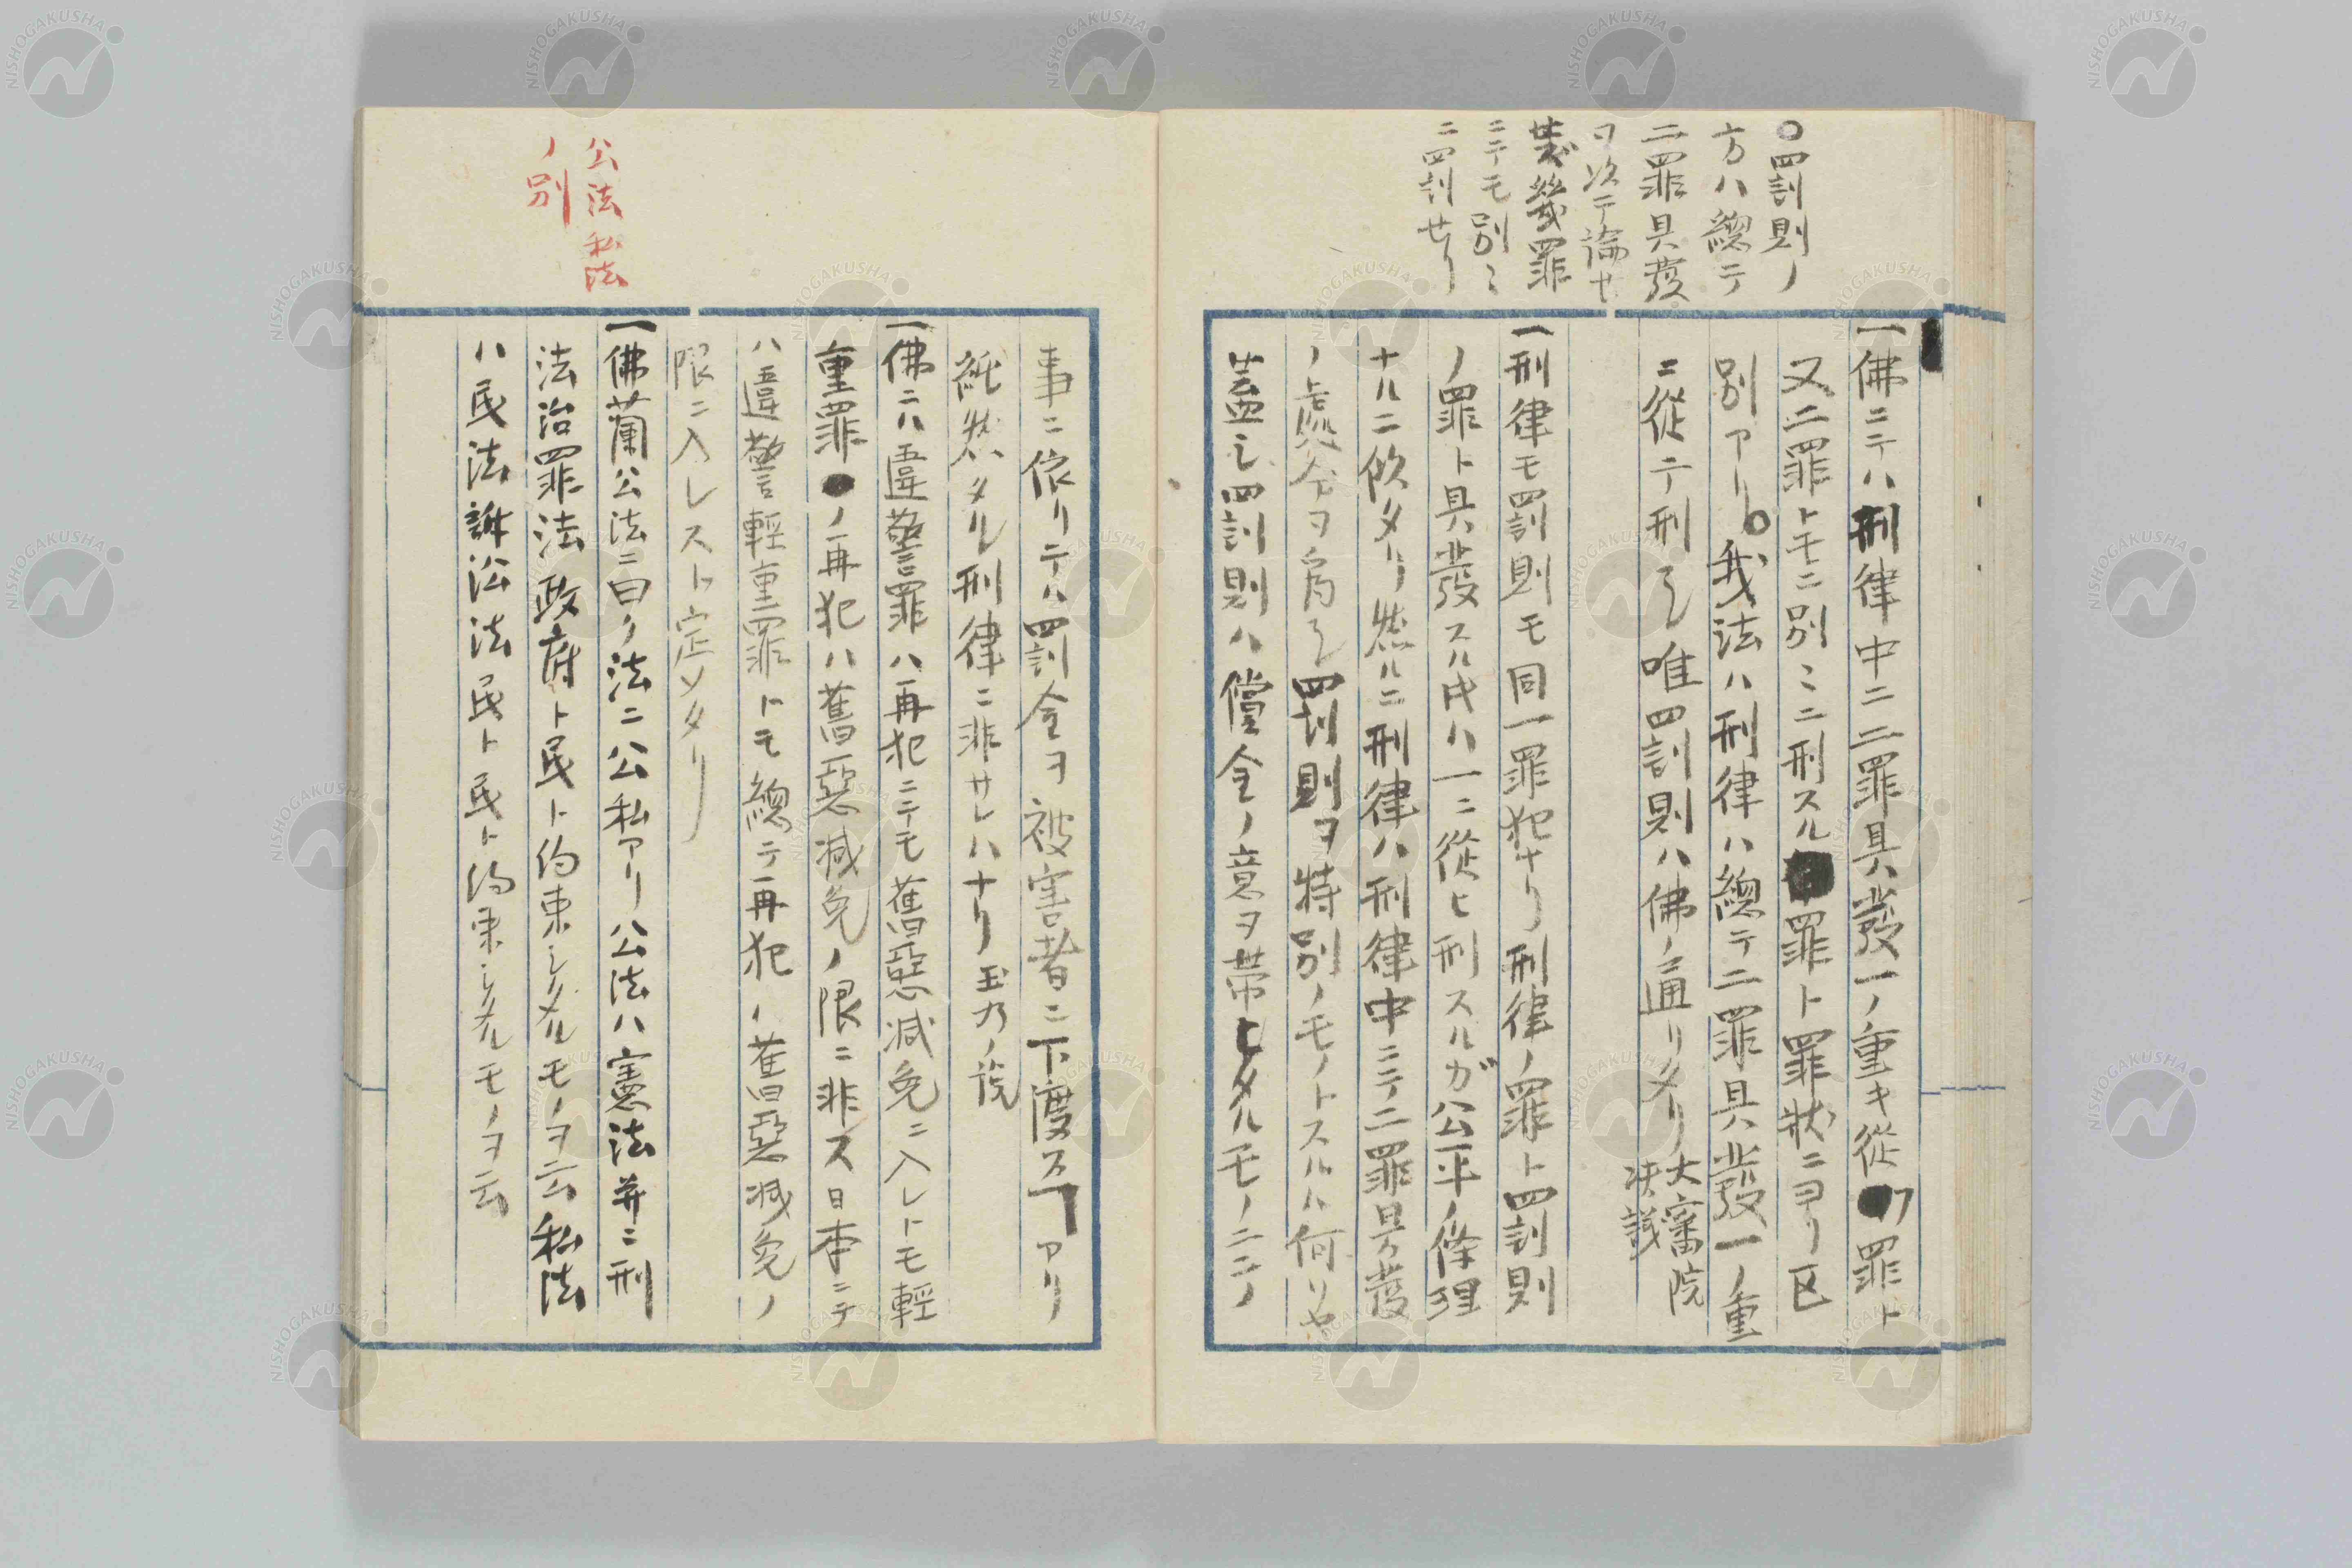 ○罰則ノ
方ハ總テ
二罪具發
ヲ以テ論セ
ス幾罪
ニテモ別〻
ニ罰セリ
一佛ニテハ刑律中ニ二罪具發一ノ重キ從フ罪ト
又二罪トモニ別〻ニ刑スル罪ト罪状ニヨリ区
別アリ○我法ハ刑律ハ總テ二罪具發一ノ重
ニ從テ刑シ唯罰則ハ佛ノ通リタリ大審院
决議
一刑律モ罰則モ同一罪犯ナリ刑律ノ罪ト罰則
ノ罪ト具發スル時ハ一ニ從ヒ刑スルガ公平ノ條理
ナルニ似タリ然ルニ刑律ハ刑律中ニテ二罪具發
ノ處分ヲ為シ罰則ヲ特別ノモノトスルハ何リヤ
蓋シ罰則ハ償金ノ意ヲ帶ヒタルモノニテ
事ニ依リテハ罰金ヲ被害者ニ下渡スヿアリ
純然タル刑律ニ非サレハナリ玉乃ノ說
一佛ニハ違警罪ハ再犯ニテモ舊惡減免ニ入レトモ輕
重罪ノ再犯ハ舊惡減免ノ限ニ非ス日本ニテ
ハ違警輕重罪トモ總テ再犯ハ舊惡減免ノ
限ニ入レスト定メタリ
公法私法
ノ別
一佛蘭公法ニ曰ク法ニ公私アリ公法ハ憲法并ニ刑
法治罪法政府ト民ト約束シタルモノヲ云私法
ハ民法訴訟法民ト民ト約束シタルモノヲ云
NISHOGAKUSHA